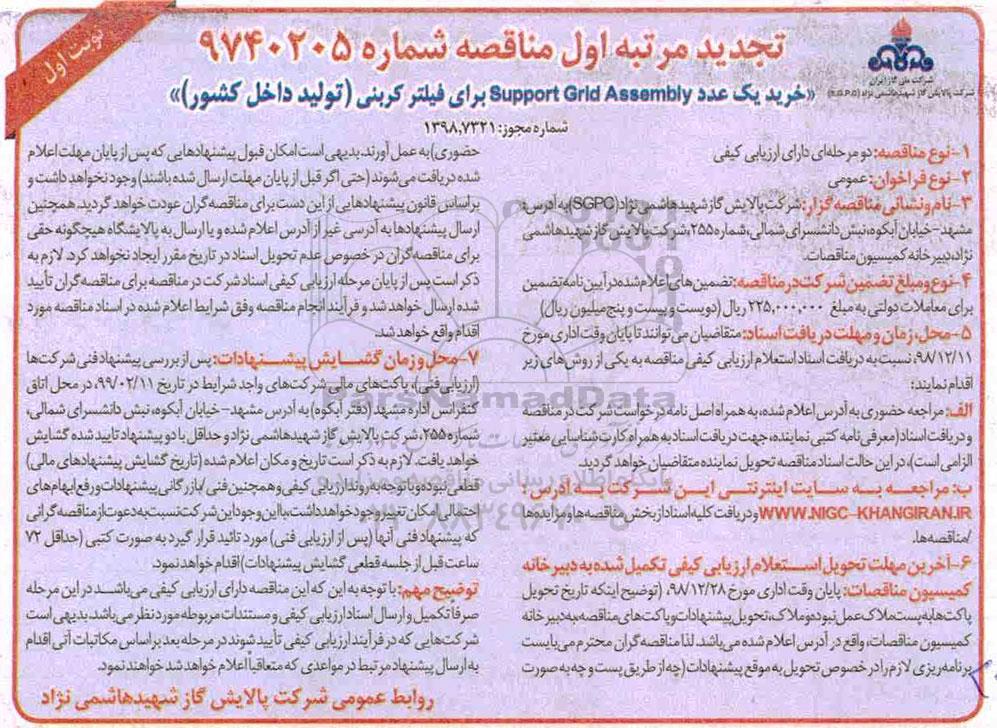 نوبت اول
تجدید مرتبه اول مناقصه شماره ۹۷۴۰۲۰۵
شرکت ملی گاز ایران
شرکت پالایش گاز شهیدهاشمی نژاد (S.G.P.C)
«خرید یک عدد Support Grid Assembly برای فیلتر کربنی (تولید داخل کشور)»
شماره مجوز: ۱۳۹۸,۷۳۲۱
۱-نوع مناقصه: دو مرحله‌ای دارای ارزیابی کیفی
۲-نوع فراخوان: عمومی
۳-نام و نشانی مناقصه گزار: شرکت پالایش گاز شهیدهاشمی نژاد (SGPC) به آدرس:
مشهد-خیابان آبکوه، نبش دانشسرای شمالی، شماره ۲۵۵، شرکت پالایش گاز شهیدهاشمی
نژاد، دبیرخانه کمیسیون مناقصات.
۴-نوع و مبلغ تضمین شرکت در مناقصه: تضمین های اعلام شده در آیین نامه تضمین
برای معاملات دولتی به مبلغ ۲۲۵,۰۰۰,۰۰۰ ریال (دویست و بیست و پنج میلیون ریال)
۵-محل، زمان و مهلت دریافت اسناد: متقاضیان می توانند تا پایان وقت اداری مورخ
۹۸/۱۲/۱۱، نسبت به دریافت اسناد استعلام ارزیابی کیفی مناقصه به یکی از روش های زیر
اقدام نمایند:
الف: مراجعه حضوری به آدرس اعلام شده، به همراه اصل نامه درخواست شرکت در مناقصه
و دریافت اسناد (معرفی نامه کتبی نماینده، جهت دریافت اسناد به همراه کارت شناسایی معتبر
الزامی است)، در این حالت اسناد مناقصه تحویل نماینده متقاضیان خواهد گردید.
ب: مراجعه به سایت اینترنتی این شرکت به آدرس :
WWW.NIGC-KHANGIRAN.IR و دریافت کلیه اسناد از بخش مناقصه ها و مزایده ها
/مناقصه ها.
۶-آخرین مهلت تحویل استعلام ارزیابی کیفی تکمیل شده به دبیرخانه
کمیسیون مناقصات: پایان وقت اداری مورخ ۹۸/۱۲/۲۸. (توضیح اینکه تاریخ تحویل
پاکت ها به پست ملاک عمل نبوده و ملاک، تحویل پیشنهادات و پاکت های مناقصه به دبیرخانه
کمیسیون مناقصات، واقع در آدرس اعلام شده می باشد. لذا مناقصه گران محترم می بایست
برنامه ریزی لازم را در خصوص تحویل به موقع پیشنهادات (چه از طریق پست و چه به صورت
حضوری) به عمل آورند. بدیهی است امکان قبول پیشنهادهایی که پس از پایان مهلت اعلام
شده دریافت می شوند (حتی اگر قبل از پایان مهلت ارسال شده باشند) وجود نخواهد داشت و
بر اساس قانون پیشنهادهایی از این دست برای مناقصه گران عودت خواهد گردید. همچنین
ارسال پیشنهادها به آدرسی غیر از آدرس اعلام شده و یا ارسال به پالایشگاه هیچگونه حقی
برای مناقصه گران در خصوص عدم تحویل اسناد در تاریخ مقرر ایجاد نخواهد کرد. لازم به
ذکر است پس از پایان مرحله ارزیابی کیفی اسناد شرکت در مناقصه برای مناقصه گران تأیید
شده ارسال خواهد شد و فرآیند انجام مناقصه وفق شرایط اعلام شده در اسناد مناقصه مورد
اقدام واقع خواهد شد.
۷-محل و زمان گشایش پیشنهادات: پس از بررسی پیشنهاد فنی شرکت ها
(ارزیابی فنی)، پاکت های مالی شرکت های واجد شرایط در تاریخ ۹۹/۰۲/۱۱، در محل اتاق
کنفرانس اداره مشهد (دفتر آبکوه) به آدرس مشهد- خیابان آبکوه، نبش دانشسرای شمالی،
شماره ۲۵۵، شرکت پالایش گاز شهیدهاشمی نژاد و حداقل با دو پیشنهاد تایید شده گشایش
خواهد یافت. لازم به ذکر است تاریخ و مکان اعلام شده (تاریخ گشایش پیشنهادهای مالی)
قطعی نبوده و با توجه به روند ارزیابی کیفی و همچنین فنی /بازرگانی پیشنهادات و رفع ابهام های
احتمالی امکان تغییر وجود خواهد داشت. با این وجود این شرکت نسبت به دعوت از مناقصه گرانی
که پیشنهاد فنی آنها (پس از ارزیابی فنی) مورد تائید قرار گیرد به صورت کتبی (حداقل ۷۲
ساعت قبل از جلسه قطعی گشایش پیشنهادات) اقدام خواهد نمود.
توضیح مهم: با توجه به این که این مناقصه دارای ارزیابی کیفی می‌باشد، در این مرحله
صرفا تکمیل و ارسال اسناد ارزیابی کیفی و مستندات مربوطه مورد نظر می باشد. بدیهی است
شرکت هایی که در فرآیند ارزیابی کیفی تأیید شوند در مرحله بعد بر اساس مکاتبات آتی اقدام
به ارسال پیشنهاد مرتبط در مواعدی که متعاقباً اعلام خواهد شد خواهند نمود.
روابط عمومی شرکت پالایش گاز شهیدهاشمی نژاد
ParsNamadData
پایگاه اطلاع رسانی مناقصه و مزایده